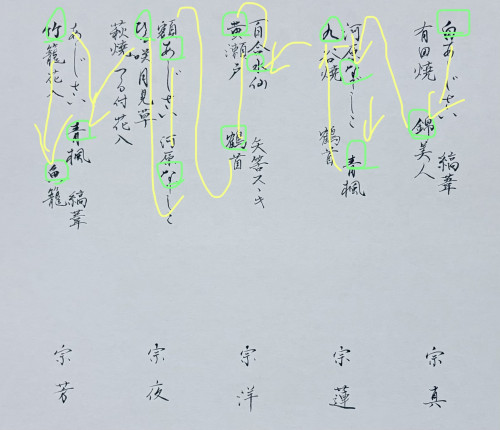 白あじさい 縞葦
有田焼 錦美人
河原なでしこ 青楓
九谷焼 鶴首
百合水仙 矢筈ススキ
黄瀬戸 鶴首
額あじさい 河原なでしこ
ひる咲月見草
萩焼 つる付花入
あじさい 青楓 縞葦
竹籠花入 魚籠
宗真
宗蓮
宗洋
宗夜
宗芳